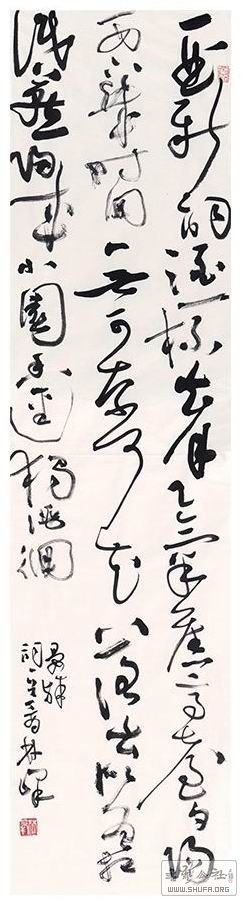 一曲新词酒一杯去年天气旧亭台夕阳
西下几时回无可奈何花落去似曾相
识燕归来小园香径独徘徊
晏殊
词一首 林峰
WWW.SHUFA.ORG